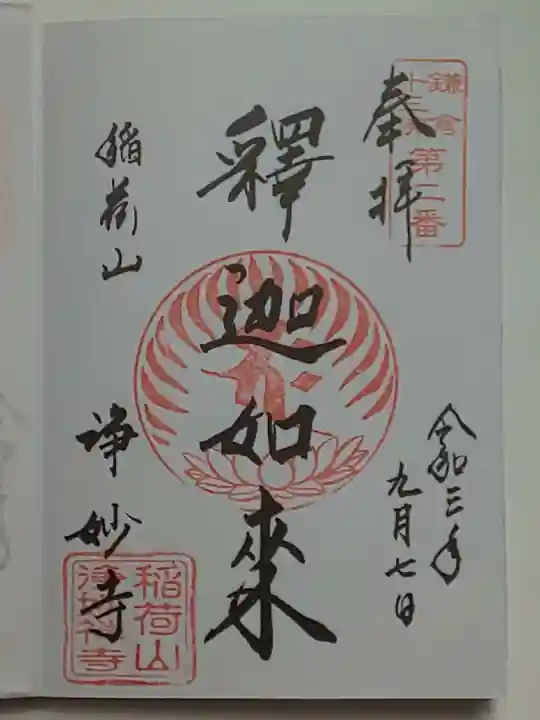 奉拝
鎌倉
十三佛
第二番
令和三年
九月七日
釋迦如来
稲荷山
浄妙寺
稲荷山
浄妙寺